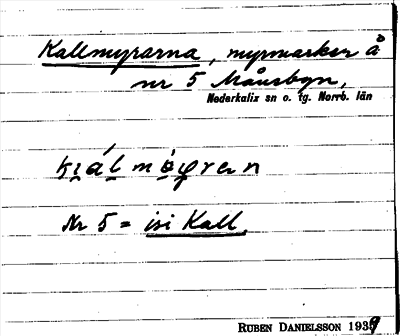 Kallmyrarna, myrmarker å
nr 5 Månsbyn,
Nederkalix sn o. tg. Norrb. län
Nr 5 = isi Kall.
RUBEN DANIELSSON 1939